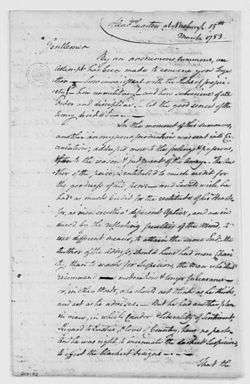 Head Quarters Newburgh 15th
March 1783
Gentlemen
By an anonymous summons, an
attempt has been made to convene you toge-
ther – how inconsistent with the rules of propri-
ety! how unmilitary! and how subversive of all
order and discipline – let the good sense of the
Army decide.
In the moment of this summons,
another anonymous production was sent into Cir-
culation; addressed more to the feelings & passions,
than to the reason & judgment of the Army. – The Au-
thor of the piece, is entitled to much credit for
the goodness of his Pen: and I could wish he
had as much credit for the rectitude of his Heart –
for, as men see thro' different Optics, and are in-
duced by the reflecting faculties of the Mind, to
use different means to attain the same end; the
Author of the Address, should have had more Chari-
ty, than to mark for Suspicion, the Man who should
recommend Moderation & longer forbearance –
or, in other words, who should not think as he thinks,
and act as he advises. – But he had another plan
in view, in which Candor & liberality of Sentiment,
Regard to Justice, & love of Country, have no part;
and he was right, to insinuate the darkest suspicion,
to effect the blackest designs. –
That the